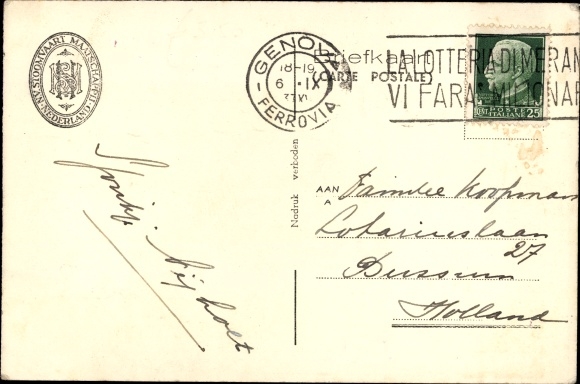 STOOMVAART MAATSCHAPPIJ NEDERLAND
Briefkaart
(CARTE POSTALE)
GENOVA
18-19
6 IX
XVI
FERROVIA
LA LOTTERIA DI MERAN
VI FARÀ MILIONAR
POSTE
ITALIANE
25
Nadruk verboden
AAN
A
Familie Koopman
Lothariuslaan
27
Bussum
Holland
Nijholt